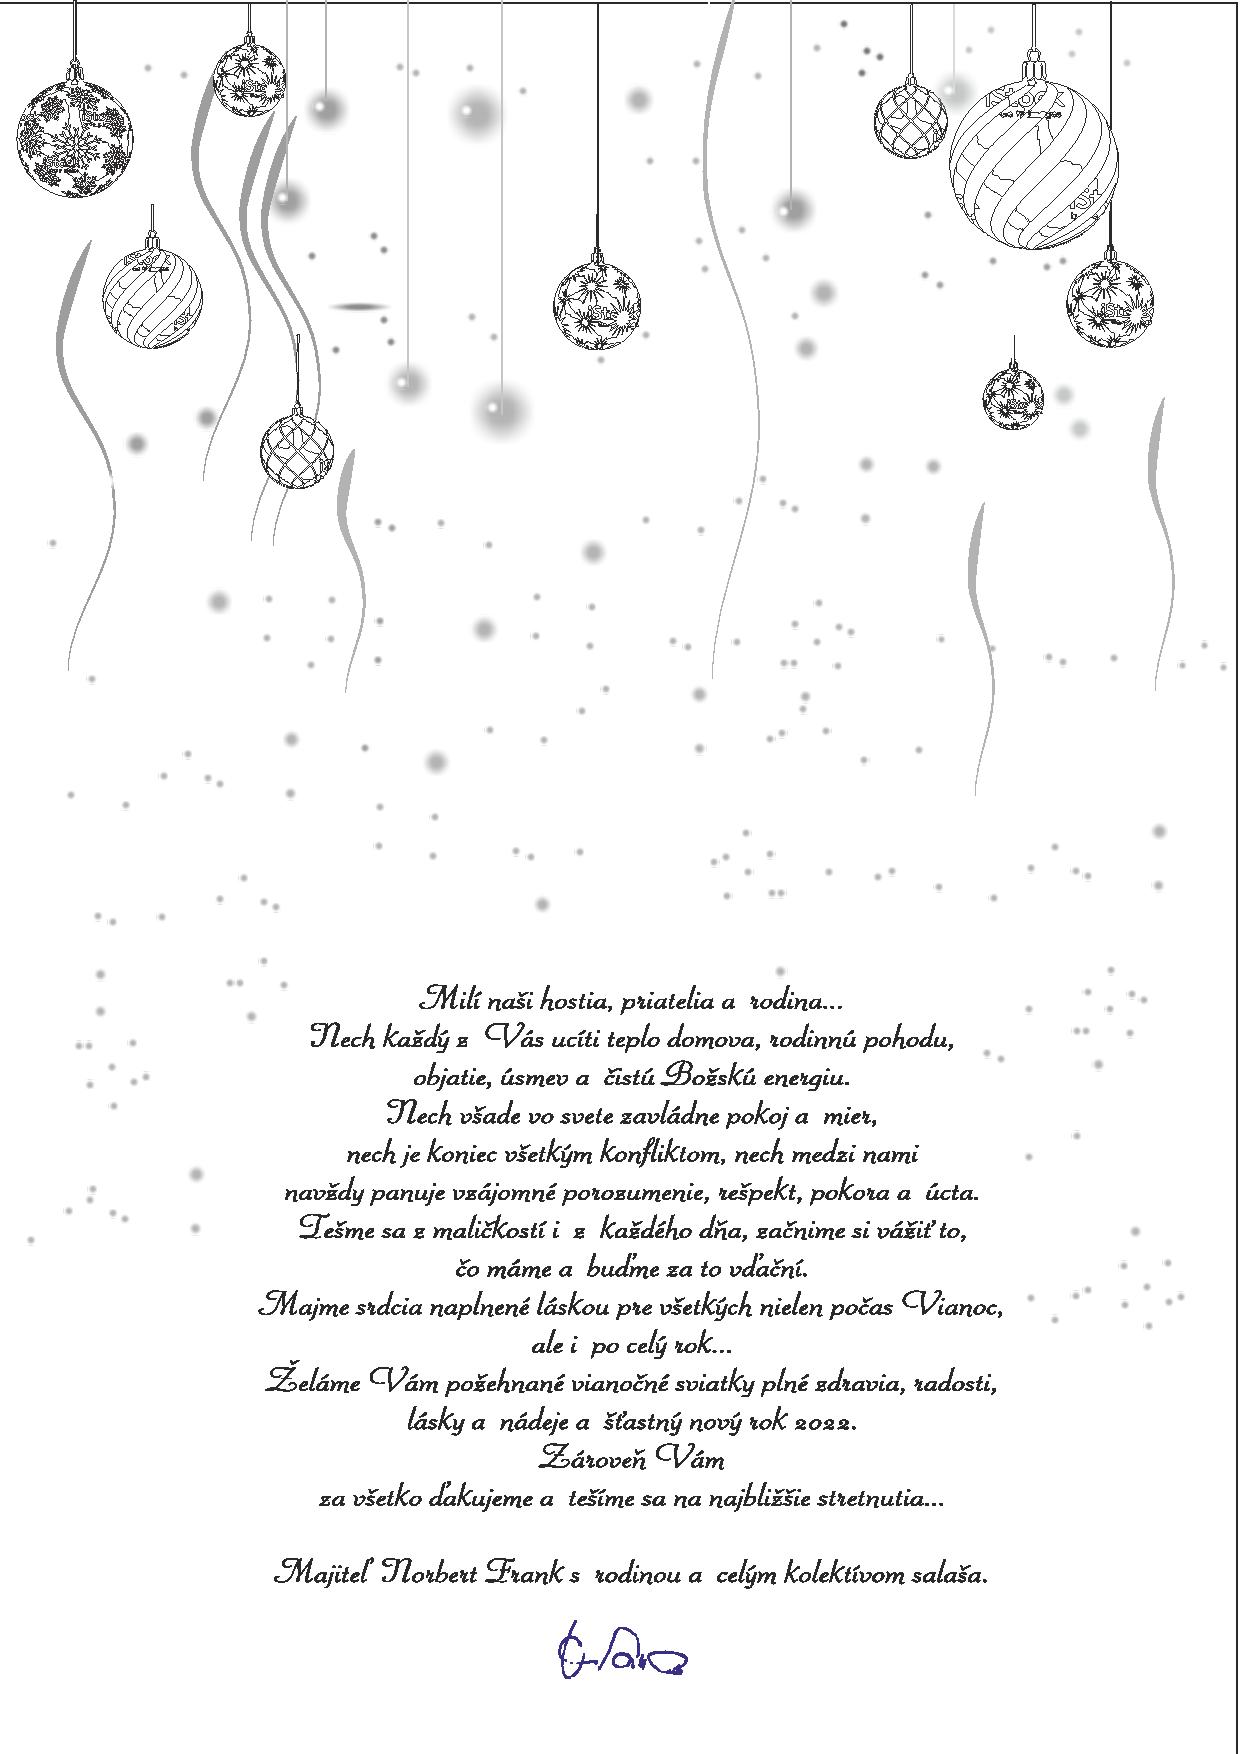 Milí naši hostia, priatelia a rodina...
Nech každý z Vás ucíti teplo domova, rodinnú pohodu,
objatie, úsmev a čistú Božskú energiu.
Nech všade vo svete zavládne pokoj a mier,
nech je koniec všetkým konfliktom, nech medzi nami
navždy panuje vzájomné porozumenie, rešpekt, pokora a úcta.
Tešme sa z maličkostí i z každého dňa, začnime si vážiť to,
čo máme a buďme za to vďační.
Majme srdcia naplnené láskou pre všetkých nielen počas Vianoc,
ale i po celý rok...
Želáme Vám požehnané vianočné sviatky plné zdravia, radosti,
lásky a nádeje a šťastný nový rok 2022.
Zároveň Vám
za všetko ďakujeme a tešíme sa na najbližšie stretnutia...
Majiteľ Norbert Frank s rodinou a celým kolektívom salaša.